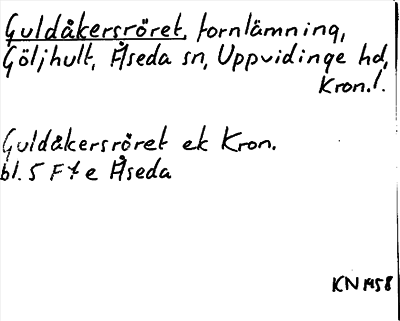 Guldåkersröret, fornlämning,
Göljhult, Åseda sn, Uppvidinge hd,
Kron.l.
Guldåkersröret ek Kron.
bl. 5 F 7 e Åseda
KN 1958